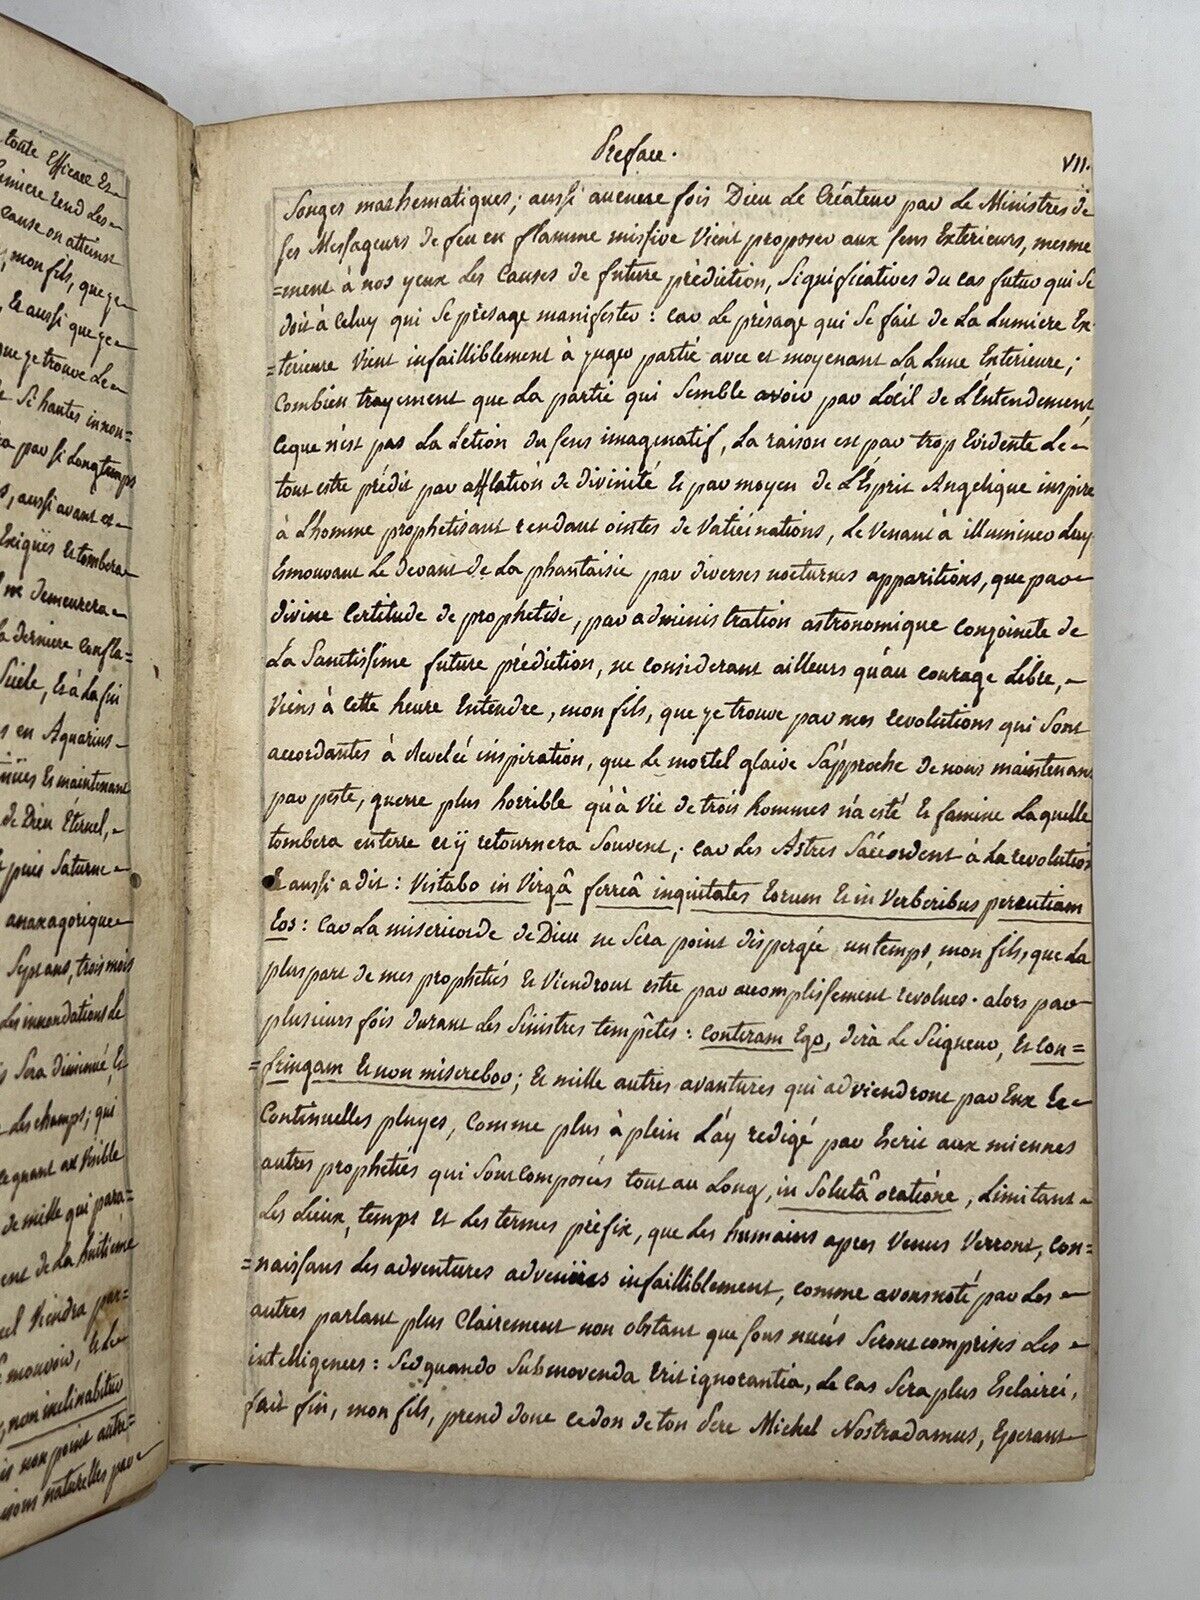 toute Efficace Et
lumiere rend Les
cause on attient
, mon fils, que ye
, Et aussi que ye
que ye trouve Le
Si hautes innon=
a par si Longtemps
, aussi avant et
Exiguës Et tombera
ne demeurera
La derniere confla=
Siécle, Et à La fin
en Aquarius
Et maintenant
de Dieu Éternel,
puis Saturne
anaxagorique
Sept ans, trois mois
Les innondations de
Sera diminué, Et
Les champs; qui
quant au Visible
de mille qui para=
de La huitiéme
Viendra par=
mouvoir, Et Le
, non inclinabitur
non point autre=
naturelles par
Preface.
VII.
Songes mathematiques; aussi aucune fois Dieu Le Créateur par Le Ministres de
ses Messageurs de feu en flamme missive Vient proposer aux sens Exterieurs, mesme
=ment à nos yeux Les Causes de future prédiction, Significatives du cas futur qui Se
doit à Celuy qui Se présage manifester: car Le présage qui Se fait de La Lumiere Ex-
=térieure Vient infailliblement à yuger partié avec et moyenant La Lune Exterieure;
Combien trayement que La partié qui Semble avoir par Lóeil de L'Entendement
Ceque n'est pas La Létion du sens imaginatif, La raison est par trop Evidente Le
tout estre prédit par afflation de divinité Et par moyen de L'Esprit Angelique inspire
à L'homme prophetisant rendant ointes de Vaticinations, Le Venant à illuminer Luy
Esmouvant Le devant de La phantaisie par diverses nocturnes apparitions, que par
divine Certitude de prophetise, par administration astronomique conjoincte de
La Sanctissime future prédiction, ne considerant ailleurs qu'au courage Libre,
Viens à Cette heure Entendre, mon fils, que ye trouve par mes revolutions qui Sont
accordantes à revelée inspiration, que Le mortel glaive S'approche de nous maintenant
par peste, guerre plus horrible qu'à Vie de trois hommes n'a esté Et famine Laquelle
tombera en terre et y retournera Souvent; car Les Astres S'accordent à La revolution
Et aussi a dit: Visitabo in Virgâ ferreâ iniquitates Eorum Et in Verberibus percutiam
Eos: Car La misericorde de Dieu ne Sera point dispergée un temps, mon fils, que La
pluspart de mes prophetiés Et Viendront estre par accomplissement revolues. alors par
plusieurs fois durant Les Sinistres tempêtes: Conteram Ego, dira Le Seigneur, Et con=
=fringam Et non miserebor; Et mille autres avantures qui adviendront par Eux Et
Continuelles pluyes, Comme plus à plein L'ay redigé par Escrit aux miennes
autres prophetiés qui Sont composées tout au Long, in Solutâ oratióne, Limitant
Les Lieux, temps Et Les termes préfix, que Les humains apres Venus Verront, con=
=naissans Les adventures advenües infailliblement, comme avons noté par Les
autres parlant plus Clairement non obstant que sous nuées Seront comprises Les
intelligences: Sed quando Submovenda Erit ignorantia, Le cas Sera plus Esclairci,
fait fin, mon fils, prend donc ce don de ton Pere Michel Nostradamus, Esperant